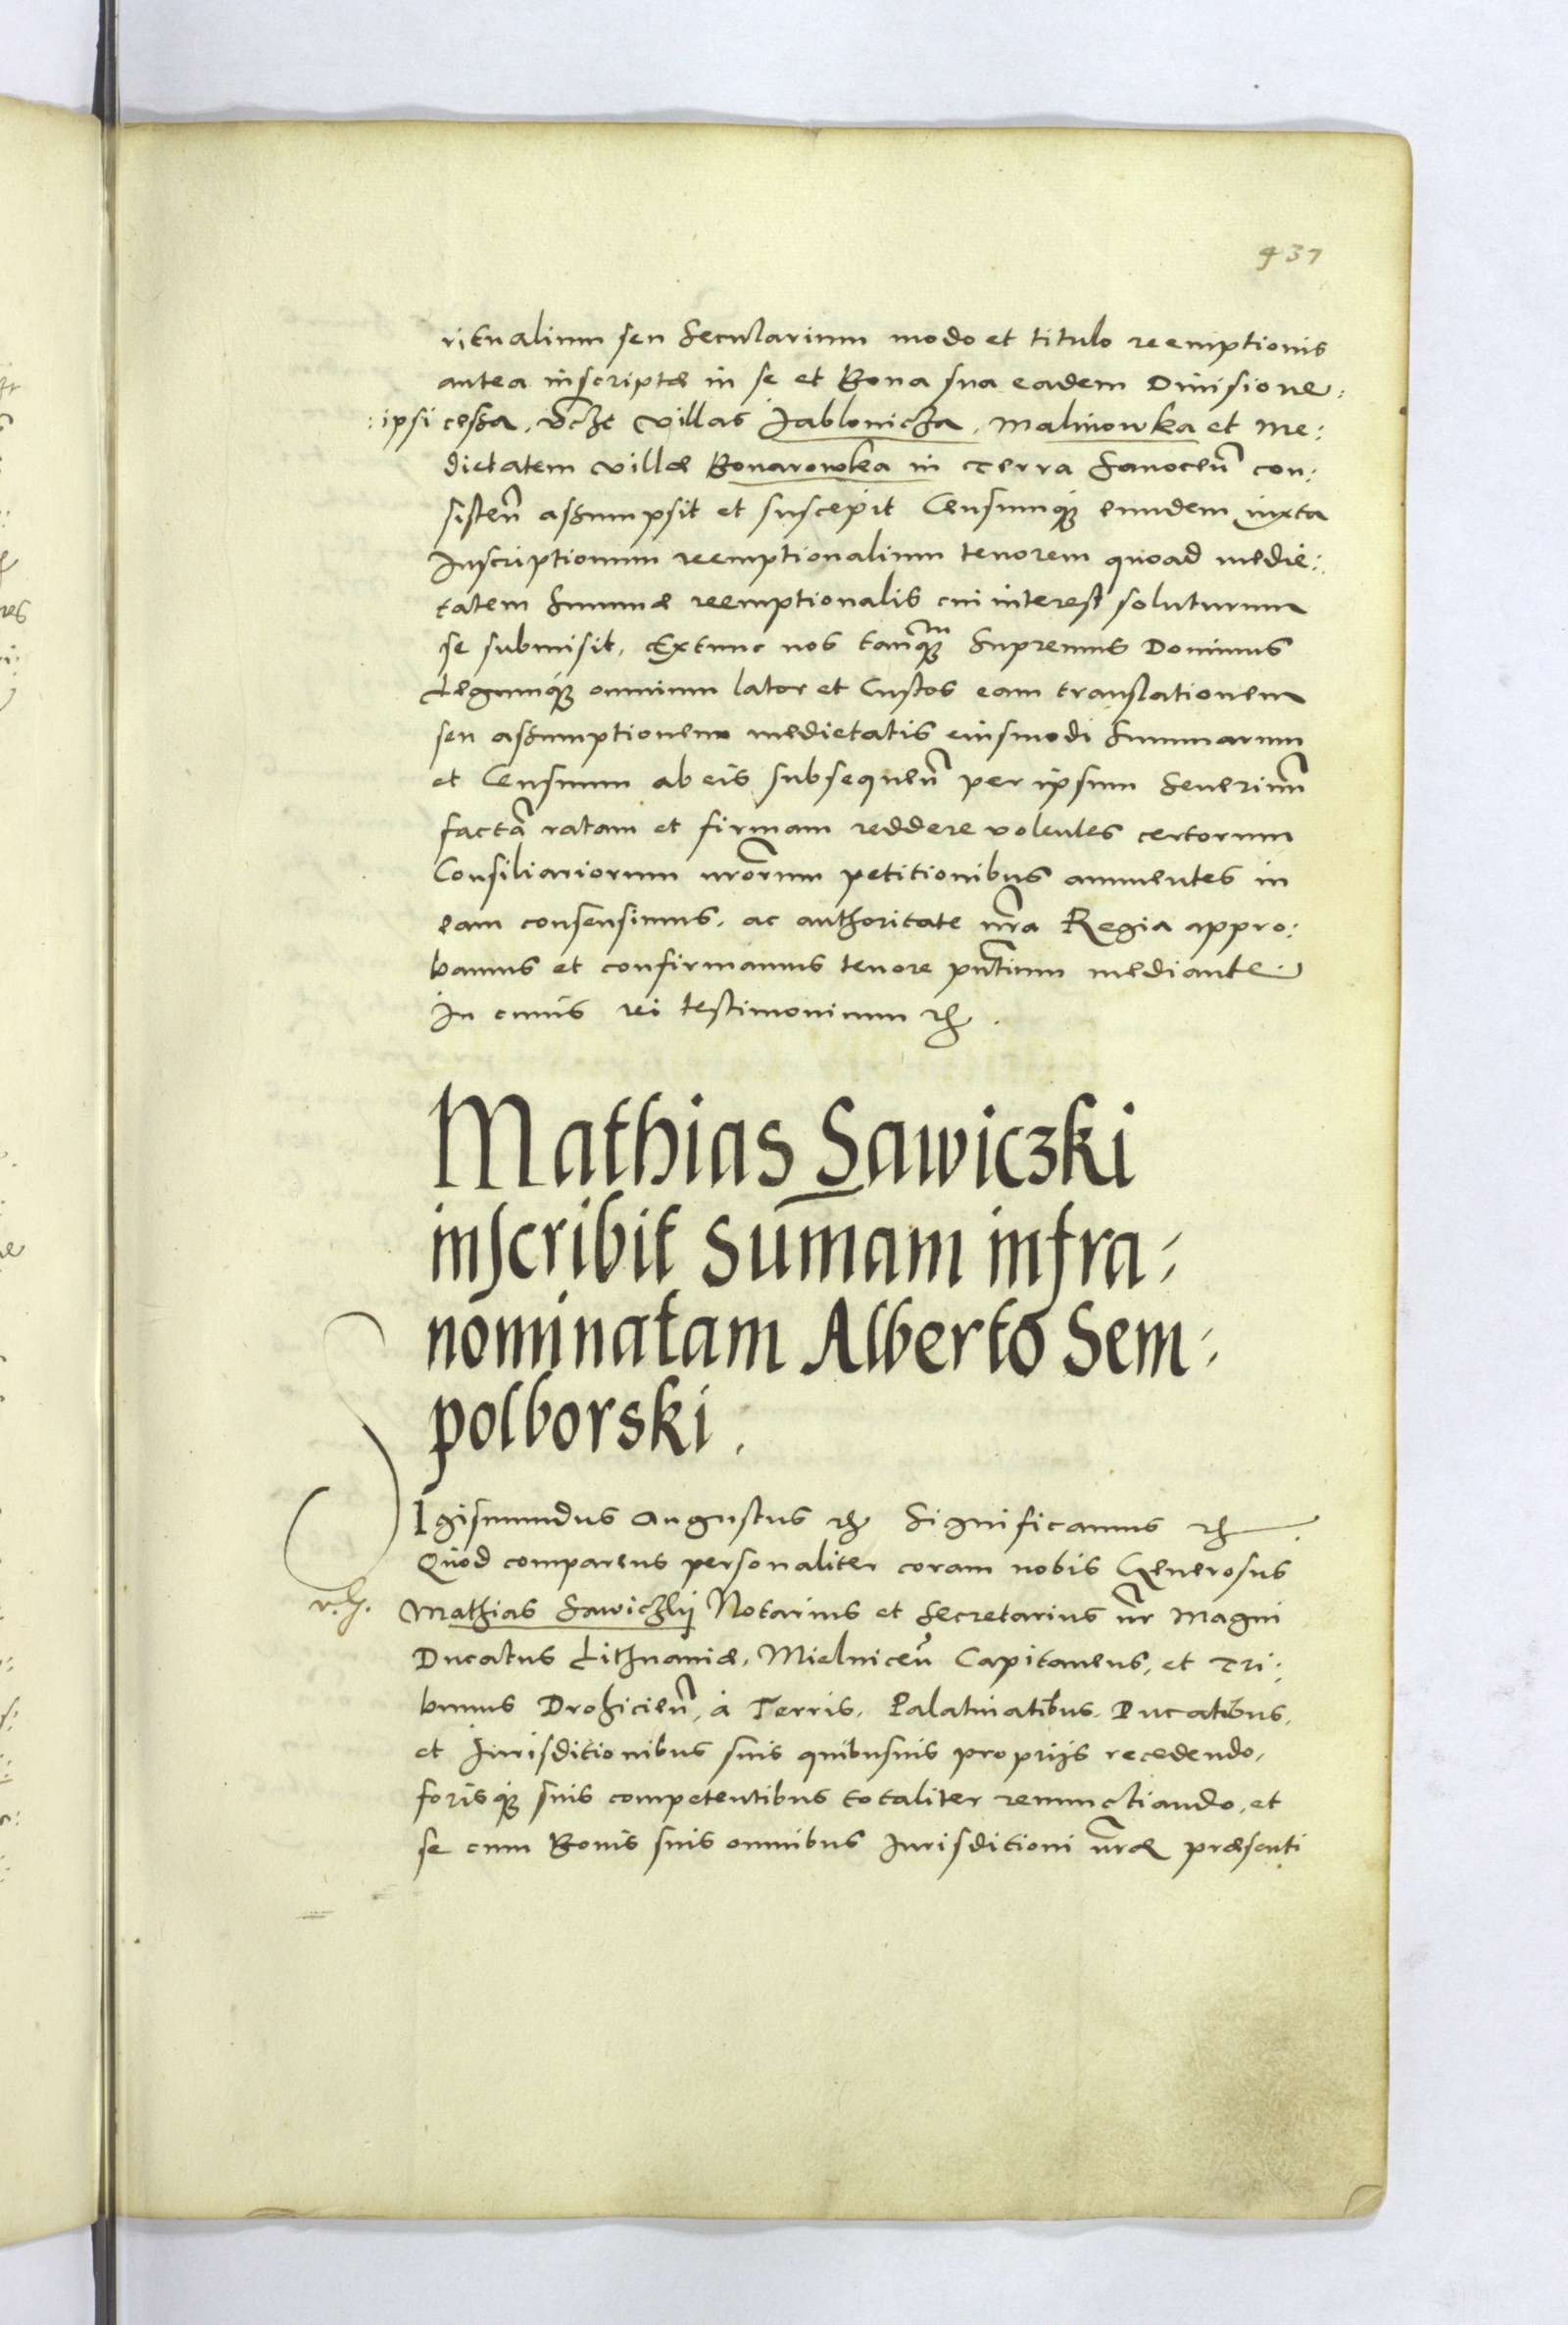 437
ritualium seu Secularium modo et titulo reemptionis
antea inscriptæ in se et Bona sua eadem Diuisione:
:ipsi cessa, vczt Villas Jablonicza, Malinowka et Me:
dietatem villæ Bonarowka in Terra Sanocen̄ con:
sisten̄ assumpsit et suscepit Censumq́ꝫ eundem iuxta
Inscriptionum reemptionalium tenorem quoad medie:
tatem Summæ reemptionalis cui interest soluturum
se submisit, Extunc nos tanq̄ꝫ Supremus Dominus
Legumq́ꝫ omnium lator et Custos eam translationem
seu assumptionem medietatis eiusmodi Summarum
et Censuum ab eis subsequen̄ per ipsum Seuerinū
factā ratam et firmam reddere volentes certorum
Consiliariorum nr̄orum petitionibus annuentes in
eam consensimus, ac authoritate nr̄a Regia appro:
bamus et confirmamus tenore pn̄tium mediante.
In cuius rei testimonium ꝛc.
Mathias Sawiczki
inscribit Sum̄am infra,
nominatam Alberto Sem,
polborski.
SIgismundus Augustus ꝛc Significamus ꝛc
Quod comparens personaliter coram nobis Generosus
r.h. Mathias Sawiczkij Notarius et Secretarius nr̄ Magni
Ducatus Lithuaniæ, Mielnicen̄ Capitaneus, et Tri:
bunus Drohicien̄, à Terris, Palatinatibus, Ducatibus,
et Jurisditionibus suis quibusuis proprijs recedendo,
forisq́ꝫ suis competentibus totaliter renunctiando, et
se cum Bonis suis omnibus Jurisditioni nr̄æ præsenti